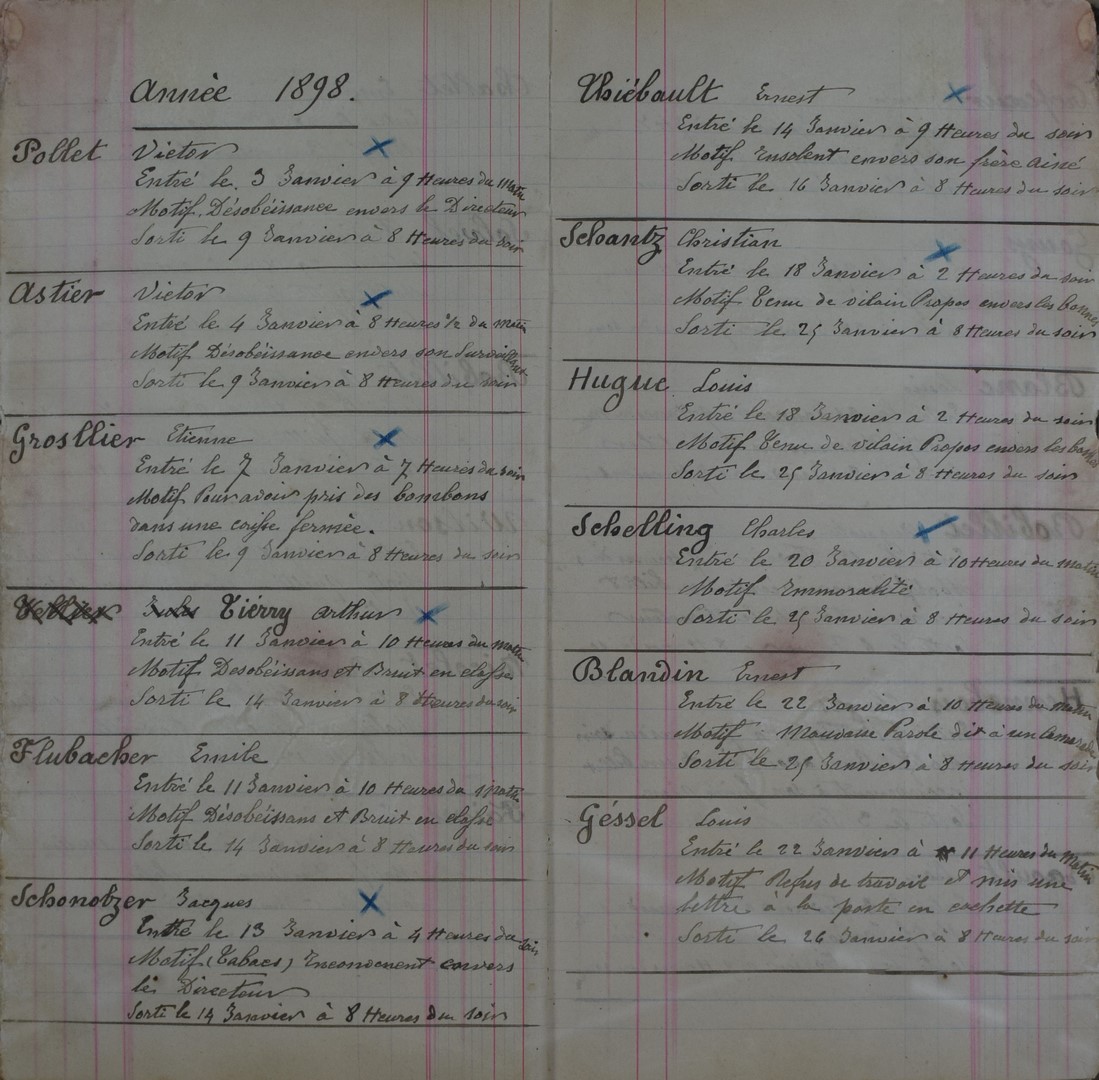 Année 1898.
Pollet Victor
Entré le 3 Janvier à 9 Heures du Matin
Motif Désobéissance envers le Directeur
Sorti le 9 Janvier à 8 Heures du soir
Astier Victor
Entré le 4 Janvier à 8 Heures ½ du Matin
Motif Désobéissance envers son Surveillant
Sorti le 9 Janvier à 8 Heures du soir
Grosllier Etienne
Entré le 7 Janvier à 7 Heures du soir
Motif Pour avoir pris des bombons
dans une caisse fermée.
Sorti le 9 Janvier à 8 Heures du soir
Tiérry arthur
Entré le 11 Janvier à 10 Heures du matin
Motif Desobéissans et Bruit en classe
Sorti le 14 Janvier à 8 Heures du soir
Flubacher Emile
Entré le 11 Janvier à 10 Heures du matin
Motif Désobéissans et Bruit en classe
Sorti le 14 Janvier à 8 Heures du soir
Schonotzer Jacques
Entré le 13 Janvier à 4 Heures du soir
Motif (Tabacs) Inconvenent envers
le Directeur
Sorti le 14 Janvier à 8 Heures du soir
Thiébault Ernest
Entré le 14 Janvier à 9 Heures du soir
Motif Insolent envers son frère ainé
Sorti le 16 Janvier à 8 Heures du soir
Schantz Christian
Entré le 18 Janvier à 2 Heures du soir
Motif Tenu de vilain Propos envers les bonnes
Sorti le 25 Janvier à 8 Heures du soir
Hugue Louis
Entré le 18 Janvier à 2 Heures du soir
Motif Tenu de vilain Propos envers les bonnes
Sorti le 25 Janvier à 8 Heures du soir
Schelling Charles
Entré le 20 Janvier à 10 Heures du matin
Motif Immoralité
Sorti le 25 Janvier à 8 Heures du soir
Blandin Ernest
Entré le 22 Janvier à 10 Heures du Matin
Motif Mauvaise Parole dit à un Camarade
Sorti le 25 Janvier à 8 Heures du soir
Géssel Louis
Entré le 22 Janvier à 11 Heures du Matin
Motif Refus de travail et mis une
lettre à la poste en cachette
Sorti le 26 Janvier à 8 Heures du soir